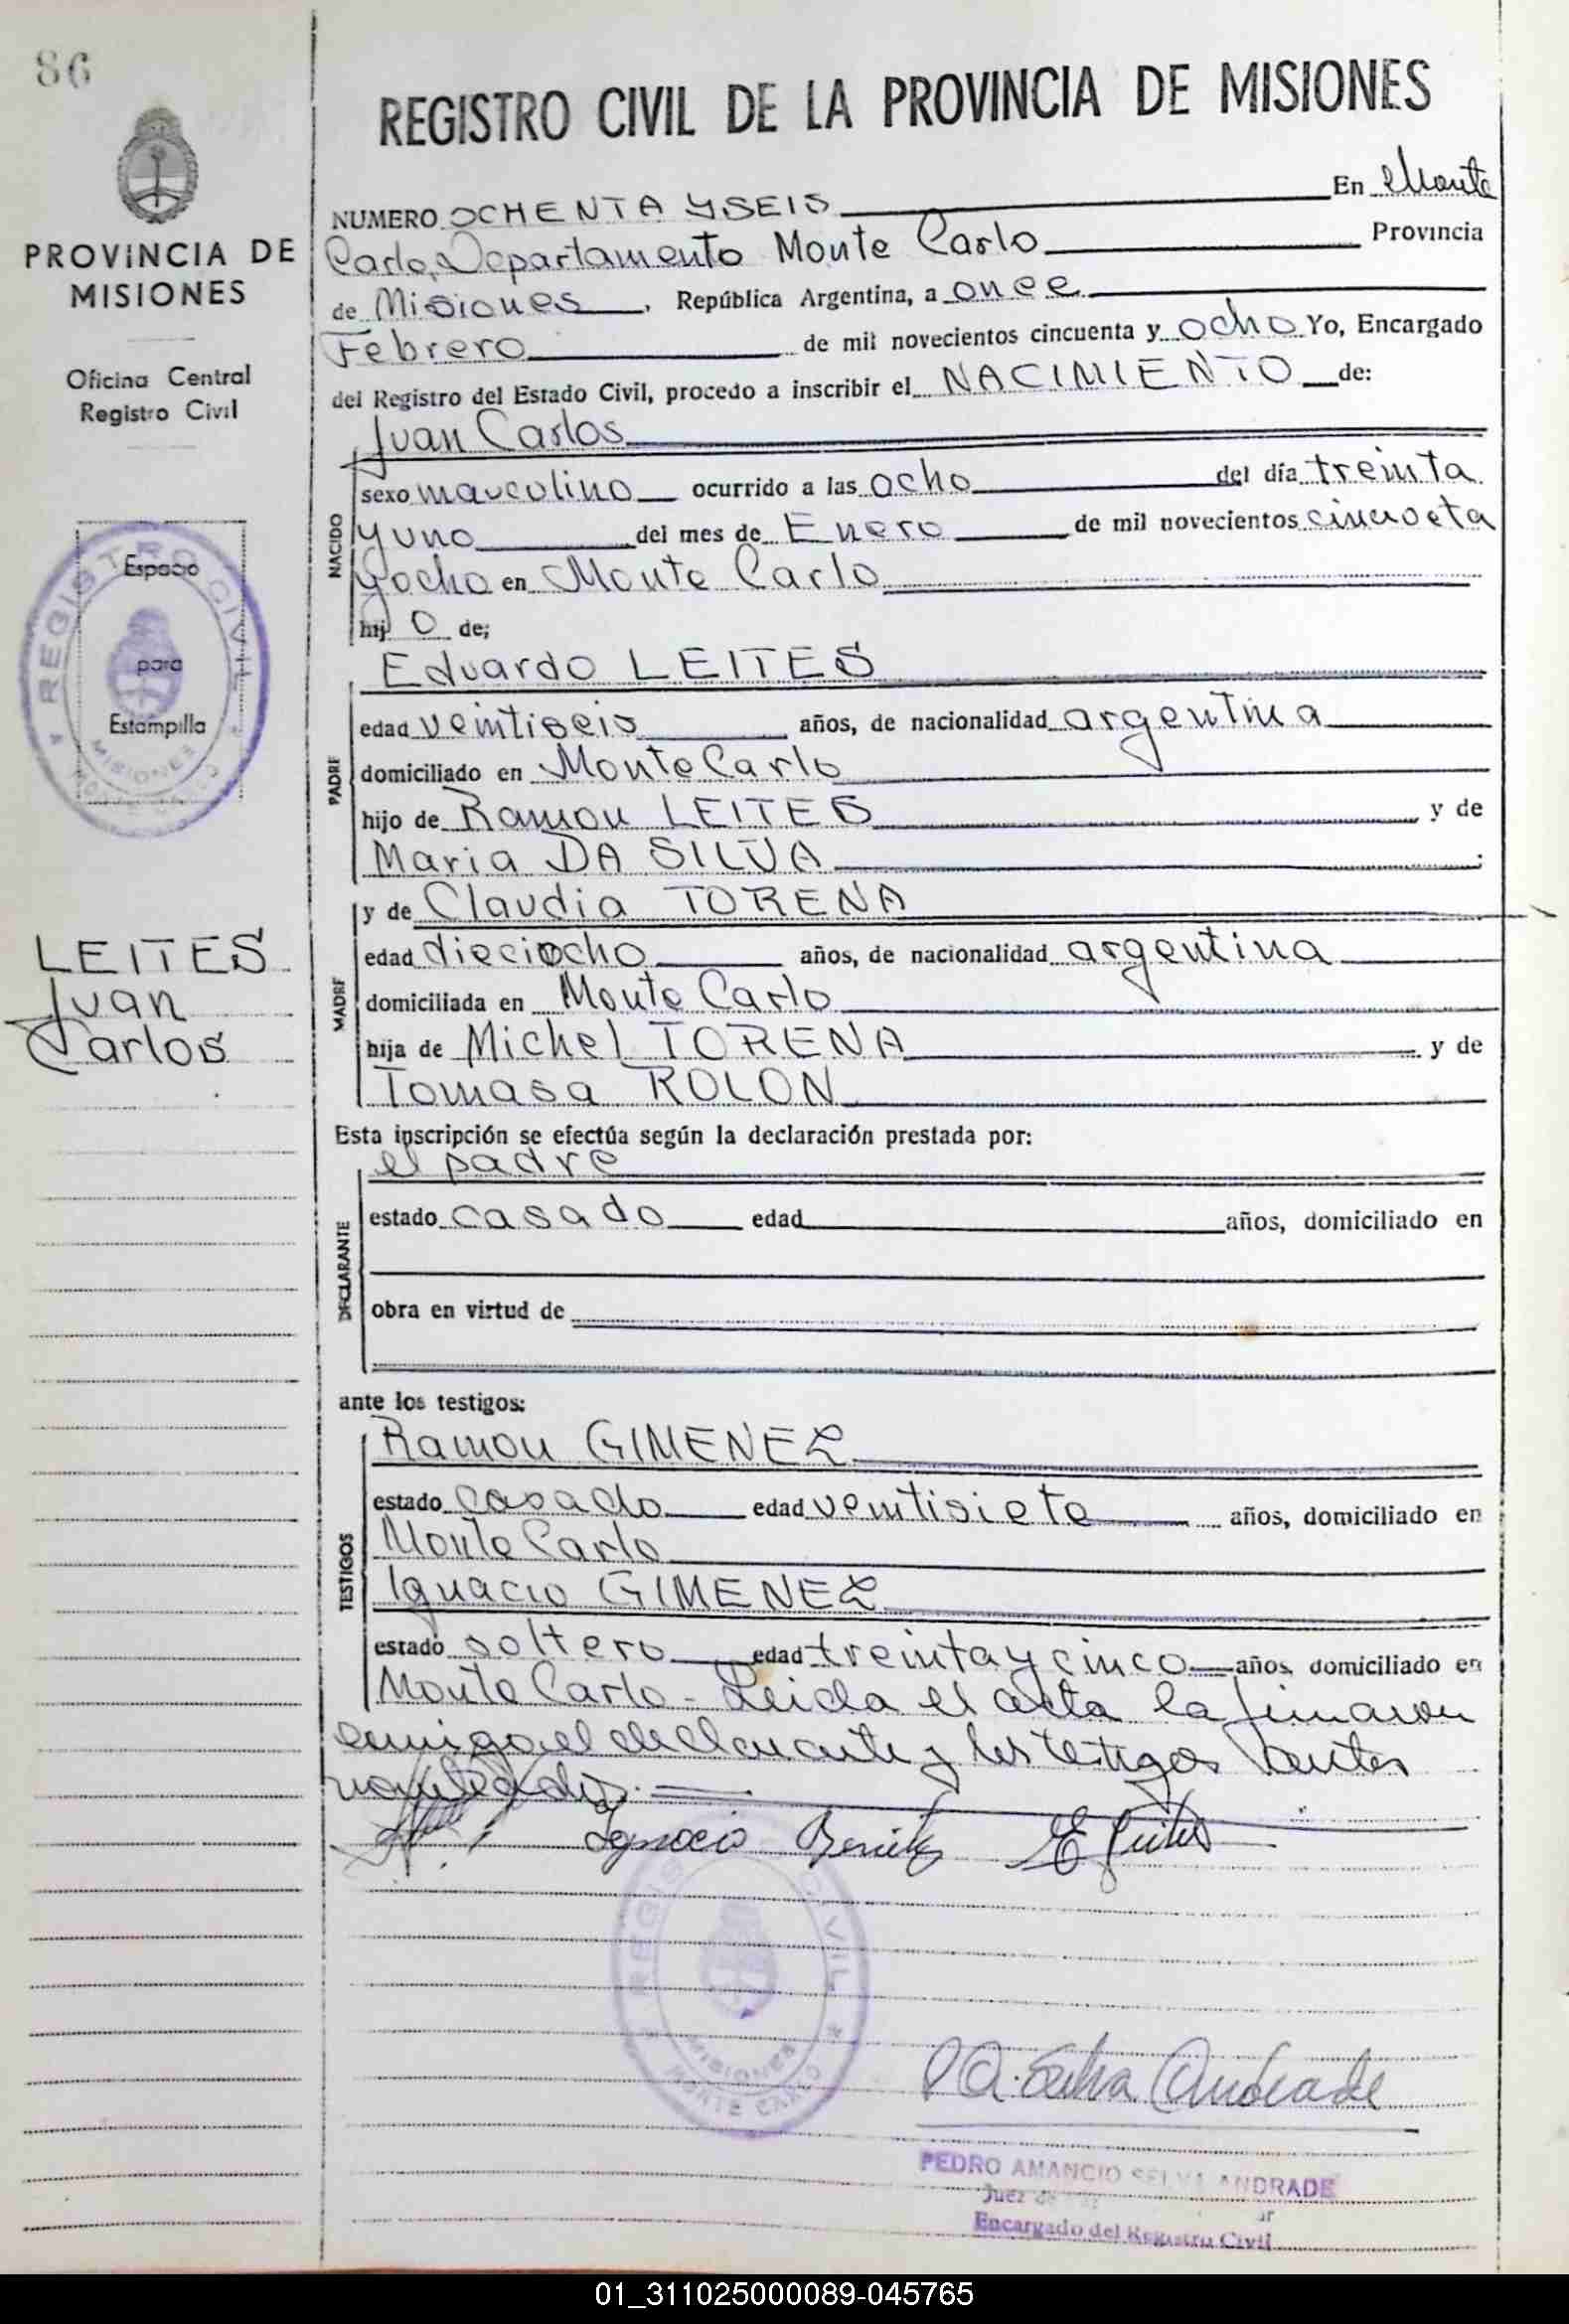 86
PROVINCIA DE
MISIONES
Oficina Central
Registro Civil
REGISTRO CIVIL
Espacio
para
Estampilla
MISIONES
MONTE CARLO
LEITES
Juan
Carlos
REGISTRO CIVIL DE LA PROVINCIA DE MISIONES
NUMERO OCHENTA Y SEIS En Monte
Carlo, Departamento Monte Carlo Provincia
de Misiones, República Argentina, a once
Febrero de mil novecientos cincuenta y ocho Yo, Encargado
del Registro del Estado Civil, procedo a inscribir el NACIMIENTO de:
Juan Carlos
NACIDO
sexo masculino ocurrido a las ocho del día treinta
y uno del mes de Enero de mil novecientos cincoeta
y ocho en Monte Carlo
hij o de;
PADRE
Eduardo LEITES
edad veintiseis años, de nacionalidad argentina
domiciliado en Monte Carlo
hijo de Ramon LEITES y de
Maria DA SILVA
MADRE
y de Claudia TORENA
edad dieciocho años, de nacionalidad argentina
domiciliada en Monte Carlo
hija de Michel TORENA y de
Tomasa ROLON
Esta inscripción se efectúa según la declaración prestada por:
DECLARANTE
el padre
estado casado edad años, domiciliado en
obra en virtud de
ante los testigos:
TESTIGOS
Ramon GIMENEZ
estado casado edad veintisiete años, domiciliado en
Monte Carlo
Ignacio GIMENEZ
estado soltero edad treinta y cinco años, domiciliado en
Monte Carlo - Leida el acta la firmaron
conmigo el declarante y los testigos antes
Ignacio Benitez E Leites
REGISTRO CIVIL
MISIONES
MONTE CARLO
P A. Selva Andrade
PEDRO AMANCIO SELVA ANDRADE
Juez de
Encargado del Registro Civil
01_311025000089-045765